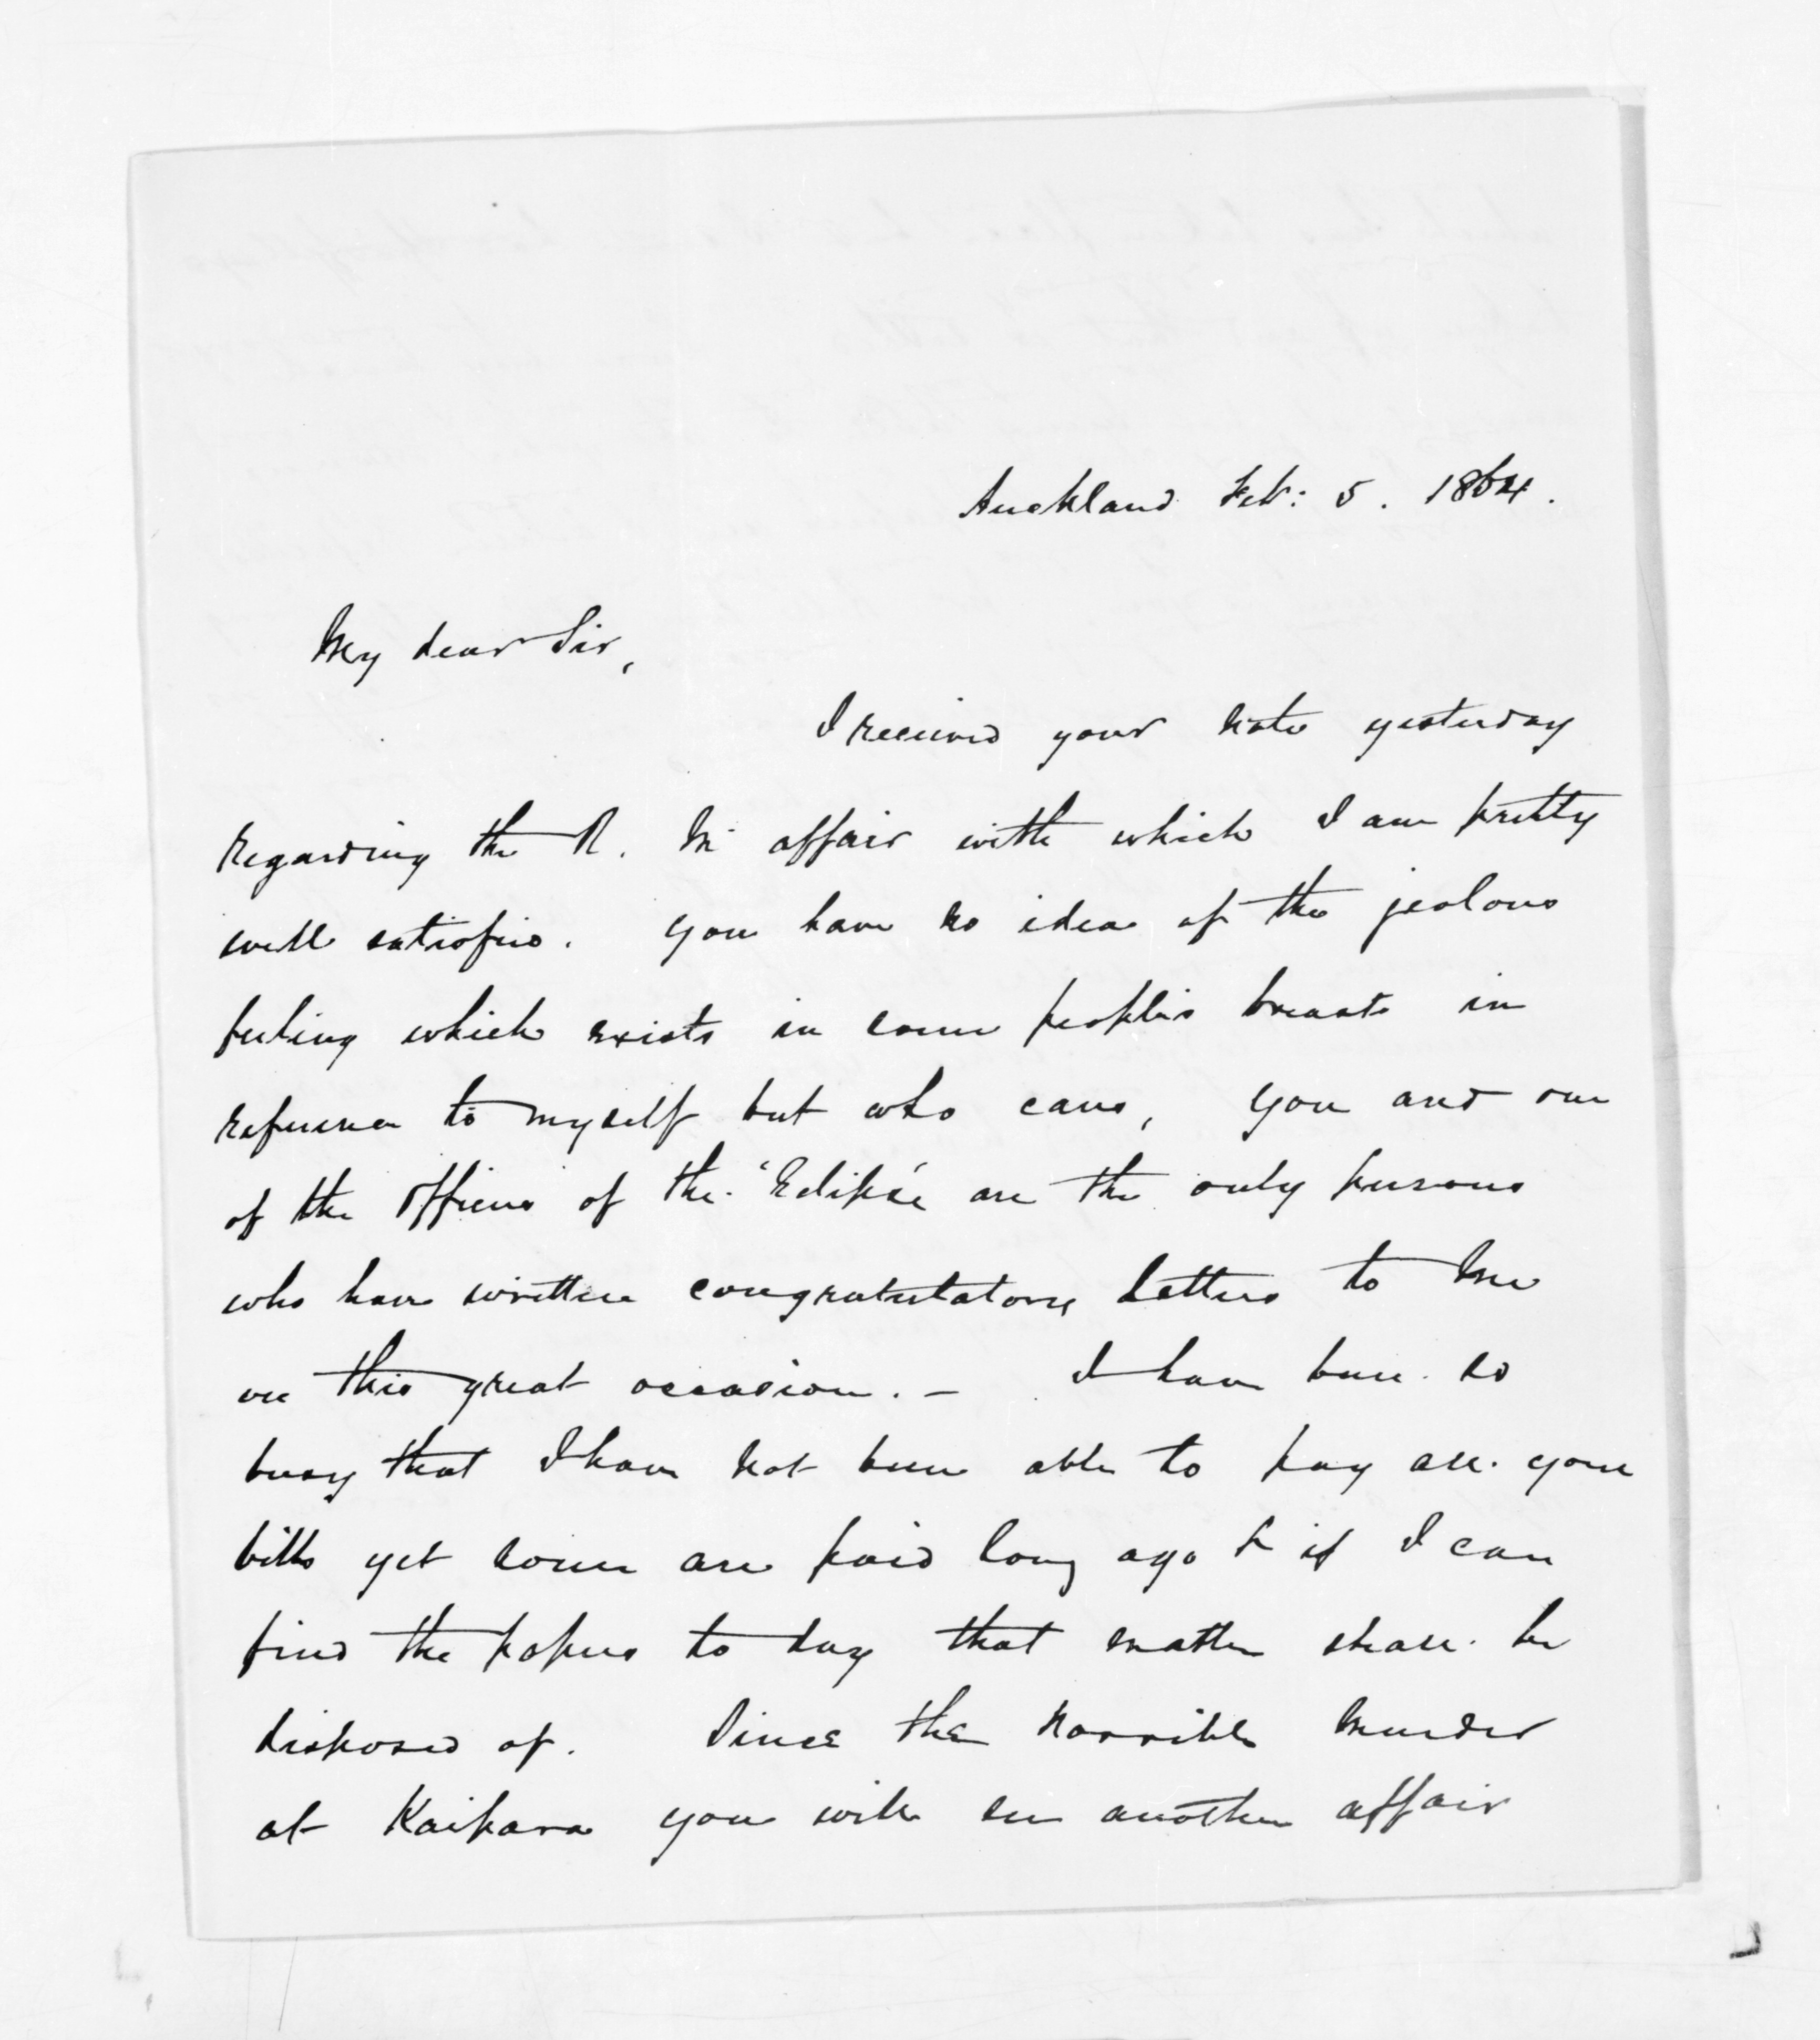 Auckland Feb: 5. 1864.
My dear Sir,
I received your note yesterday
regarding the R. M affair with which I am pretty
well satisfied. You have no idea of the jealous
feeling which exists in some people's breasts in
reference to myself but who cares, you and one
of the Officers of the 'Eclipse' are the only persons
who have written congratulatory letters to me
on this great occasion. - I have been so
busy that I have not been able to pay all your
bills yet some are paid long ago & if I can
find the papers to day that matter shall be
disposed of. Since the horrible murder
at Kaipara you will see another affair